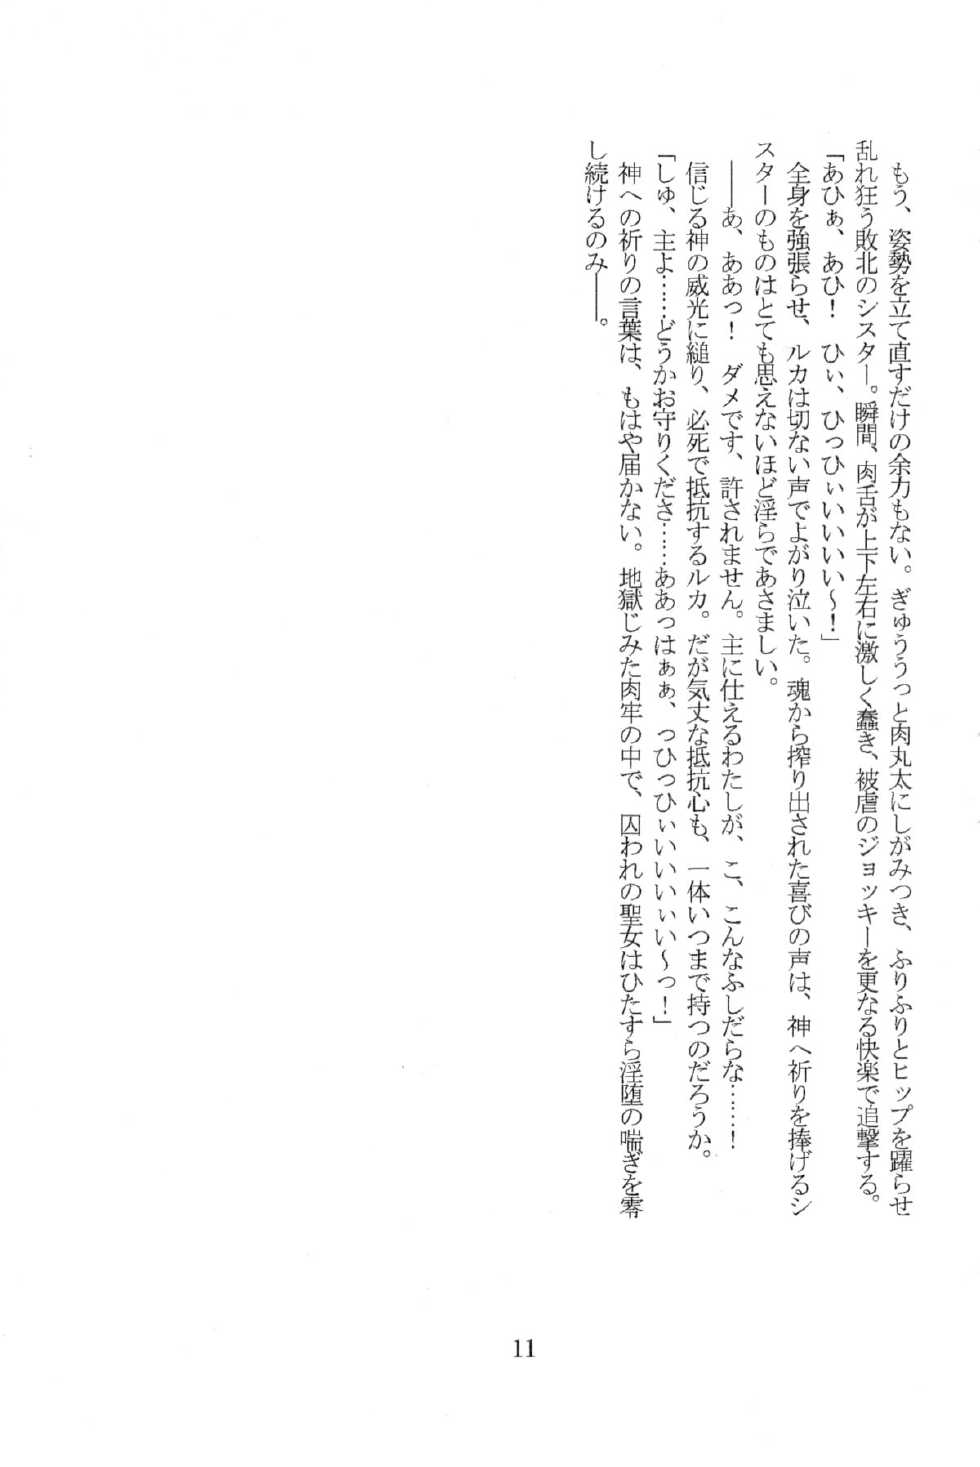 もう、姿勢を立て直すだけの余力もない。ぎゅううっと肉丸太にしがみつき、ふりふりとヒップを躍らせ
乱れ狂う敗北のシスター。瞬間、肉舌が上下左右に激しく蠢き、被虐のジョッキーを更なる快楽で追撃する。
「あひぁ、あひ！　ひぃ、ひっひぃいいいい～！」
全身を強張らせ、ルカは切ない声でよがり泣いた。魂から搾り出された喜びの声は、神へ祈りを捧げるシ
スターのものはとても思えないほど淫らであさましい。
――あ、ああっ！　ダメです、許されません。主に仕えるわたしが、こ、こんなふしだらな……！
信じる神の威光に縋り、必死で抵抗するルカ。だが気丈な抵抗心も、一体いつまで持つのだろうか。
「しゅ、主よ……どうかお守りくださ……ああっはぁぁ、っひっひぃいいいぃい～っ！」
神への祈りの言葉は、もはや届かない。地獄じみた肉牢の中で、囚われの聖女はひたすら淫堕の喘ぎを零
し続けるのみ――。
11